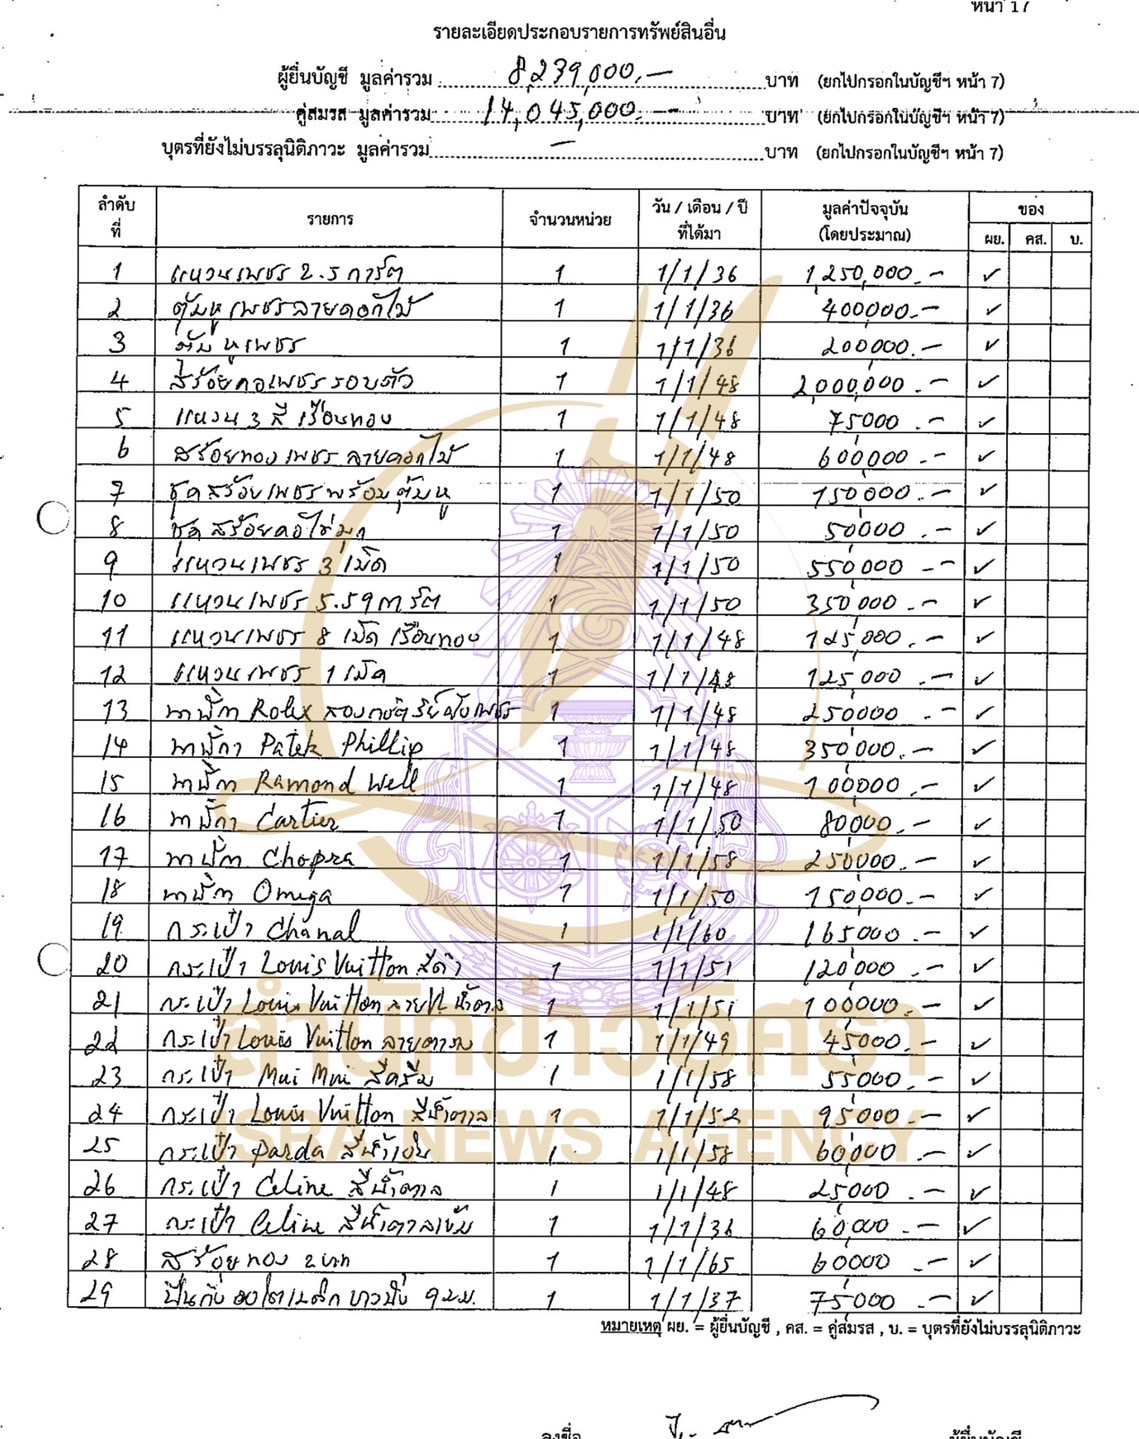 หน้า 17
รายละเอียดประกอบรายการทรัพย์สินอื่น
ผู้ยื่นบัญชี มูลค่ารวม 8,239,000.- บาท (ยกไปกรอกในบัญชีฯ หน้า 7)
คู่สมรส มูลค่ารวม 14,045,000.- บาท (ยกไปกรอกในบัญชีฯ หน้า 7)
บุตรที่ยังไม่บรรลุนิติภาวะ มูลค่ารวม - บาท (ยกไปกรอกในบัญชีฯ หน้า 7)
ลำดับที่ รายการ จำนวนหน่วย วัน / เดือน / ปี ที่ได้มา มูลค่าปัจจุบัน (โดยประมาณ) ของ
ผย. คส. บ.
1 แหวนเพชร 2.5 การ์ต 1 1/1/36 1,250,000.- ✓
2 ตุ้มหูเพชรลายดอกไม้ 1 1/1/36 400,000.- ✓
3 ตุ้มหูเพชร 1 1/1/36 200,000.- ✓
4 สร้อยคอเพชรรอบตัว 1 1/1/48 2,000,000.- ✓
5 แหวน 3 สี เรือนทอง 1 1/1/48 75,000.- ✓
6 สร้อยทองเพชรลายดอกไม้ 1 1/1/48 600,000.- ✓
7 ชุดสร้อยเพชรพร้อมตุ้มหู 1 1/1/50 150,000.- ✓
8 ชุดสร้อยคอไข่มุก 1 1/1/50 50,000.- ✓
9 แหวนเพชร 3 เม็ด 1 1/1/50 550,000.- ✓
10 แหวนเพชร 5.59 การ์ต 1 1/1/50 350,000.- ✓
11 แหวนเพชร 8 เม็ด เรือนทอง 1 1/1/48 125,000.- ✓
12 แหวนเพชร 1 เม็ด 1 1/1/48 125,000.- ✓
13 นาฬิกา Rolex สองกษัตริย์ฝังเพชร 1 1/1/48 250,000.- ✓
14 นาฬิกา Patek Phillip 1 1/1/48 350,000.- ✓
15 นาฬิกา Ramond Well 1 1/1/48 100,000.- ✓
16 นาฬิกา Cartier 1 1/1/50 80,000.- ✓
17 นาฬิกา Chopra 1 1/1/58 250,000.- ✓
18 นาฬิกา Omega 1 1/1/50 150,000.- ✓
19 กระเป๋า Chanal 1 1/1/60 165,000.- ✓
20 กระเป๋า Louis Vuitton สีดำ 1 1/1/51 120,000.- ✓
21 กระเป๋า Louis Vuitton ลาย น้ำตาล 1 1/1/51 100,000.- ✓
22 กระเป๋า Louis Vuitton ลายตาราง 1 1/1/49 45,000.- ✓
23 กระเป๋า Mui Mui สีครีม 1 1/1/58 55,000.- ✓
24 กระเป๋า Louis Vuitton สีน้ำตาล 1 1/1/52 95,000.- ✓
25 กระเป๋า Parda สีน้ำเงิน 1 1/1/58 60,000.- ✓
26 กระเป๋า Celine สีน้ำตาล 1 1/1/48 25,000.- ✓
27 กระเป๋า Celine สีน้ำตาลเข้ม 1 1/1/36 60,000.- ✓
28 สร้อยทอง 2 บาท 1 1/1/65 60,000.- ✓
29 ปืนกึ่งออโตเมติก 9 ม.ม. 1 1/1/37 75,000.- ✓
สำนักข่าวอิศรา
ISRA NEWS AGENCY
หมายเหตุ ผย. = ผู้ยื่นบัญชี , คส. = คู่สมรส , บ. = บุตรที่ยังไม่บรรลุนิติภาวะ
ลงชื่อ ผู้ยื่นบัญชี